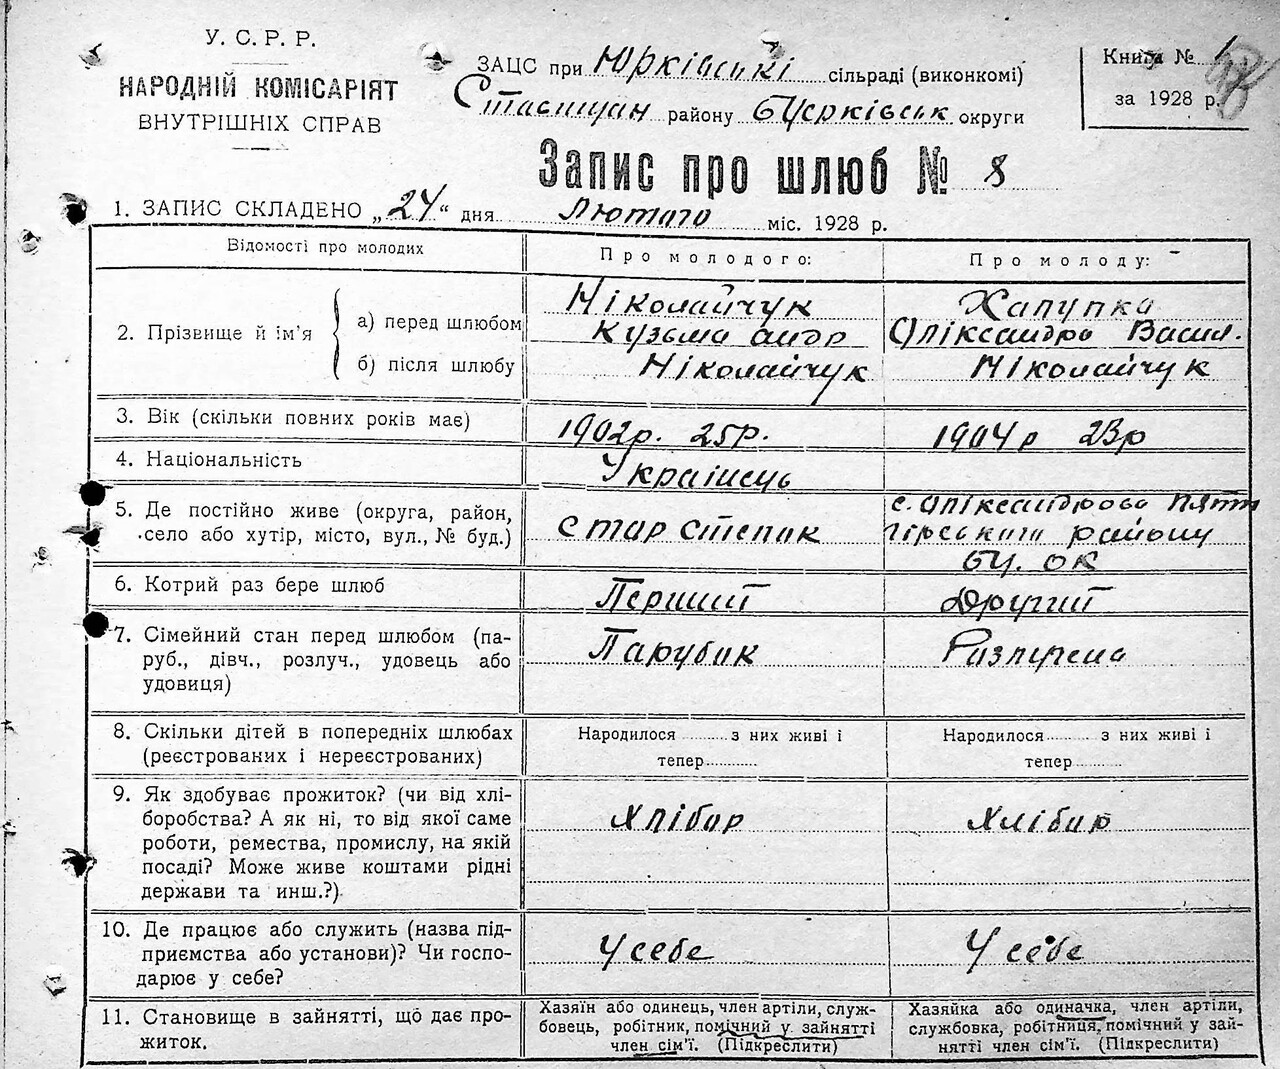 У. С. Р. Р.
НАРОДНІЙ КОМІСАРІЯТ
ВНУТРІШНІХ СПРАВ
ЗАЦС при Юрківські сільраді (виконкомі)
району округи
Книга №
за 1928 р.
Запис про шлюб № 8
1. ЗАПИС СКЛАДЕНО „24“ дня Лютого міс. 1928 р.
Відомості про молодих
Про молодого:
Про молоду:
2. Прізвище й ім'я
а) перед шлюбом
Ніколайчук
Кузьма андр
Халупка
Оліксандра Васил.
б) після шлюбу
Ніколайчук
Ніколайчук
3. Вік (скільки повних років має)
1902р. 25р.
1904р 23р
4. Національність
Українець
5. Де постійно живе (округа, район,
село або хутір, місто, вул., № буд.)
Стар Степок
с. Оліксандровo Пяти
гірського району
БЦ. ОК
6. Котрий раз бере шлюб
Перший
Другий
7. Сімейний стан перед шлюбом (па-
руб., дівч., розлуч., удовець або
удовиця)
Парубок
8. Скільки дітей в попередніх шлюбах
(реєстрованих і нереєстрованих)
Народилося ........ з них живі і
тепер............
Народилося ........ з них живі і
тепер............
9. Як здобуває прожиток? (чи від хлі-
боробства? А як ні, то від якої саме
роботи, ремества, промислу, на якій
посаді? Може живе коштами рідні
держави та инш.?)
Хлібор
Хлібор
10. Де працює або служить (назва під-
приємства або установи)? Чи госпо-
дарює у себе?
У себе
У себе
11. Становище в зайнятті, що дає про-
житок.
Хазяїн або одинець, член артіли, служ-
бовець, робітник, помічний у зайнятті
член сім'ї. (Підкреслити)
Хазяйка або одиначка, член артіли,
службовка, робітниця, помічний у зай-
нятті член сім'ї. (Підкреслити)